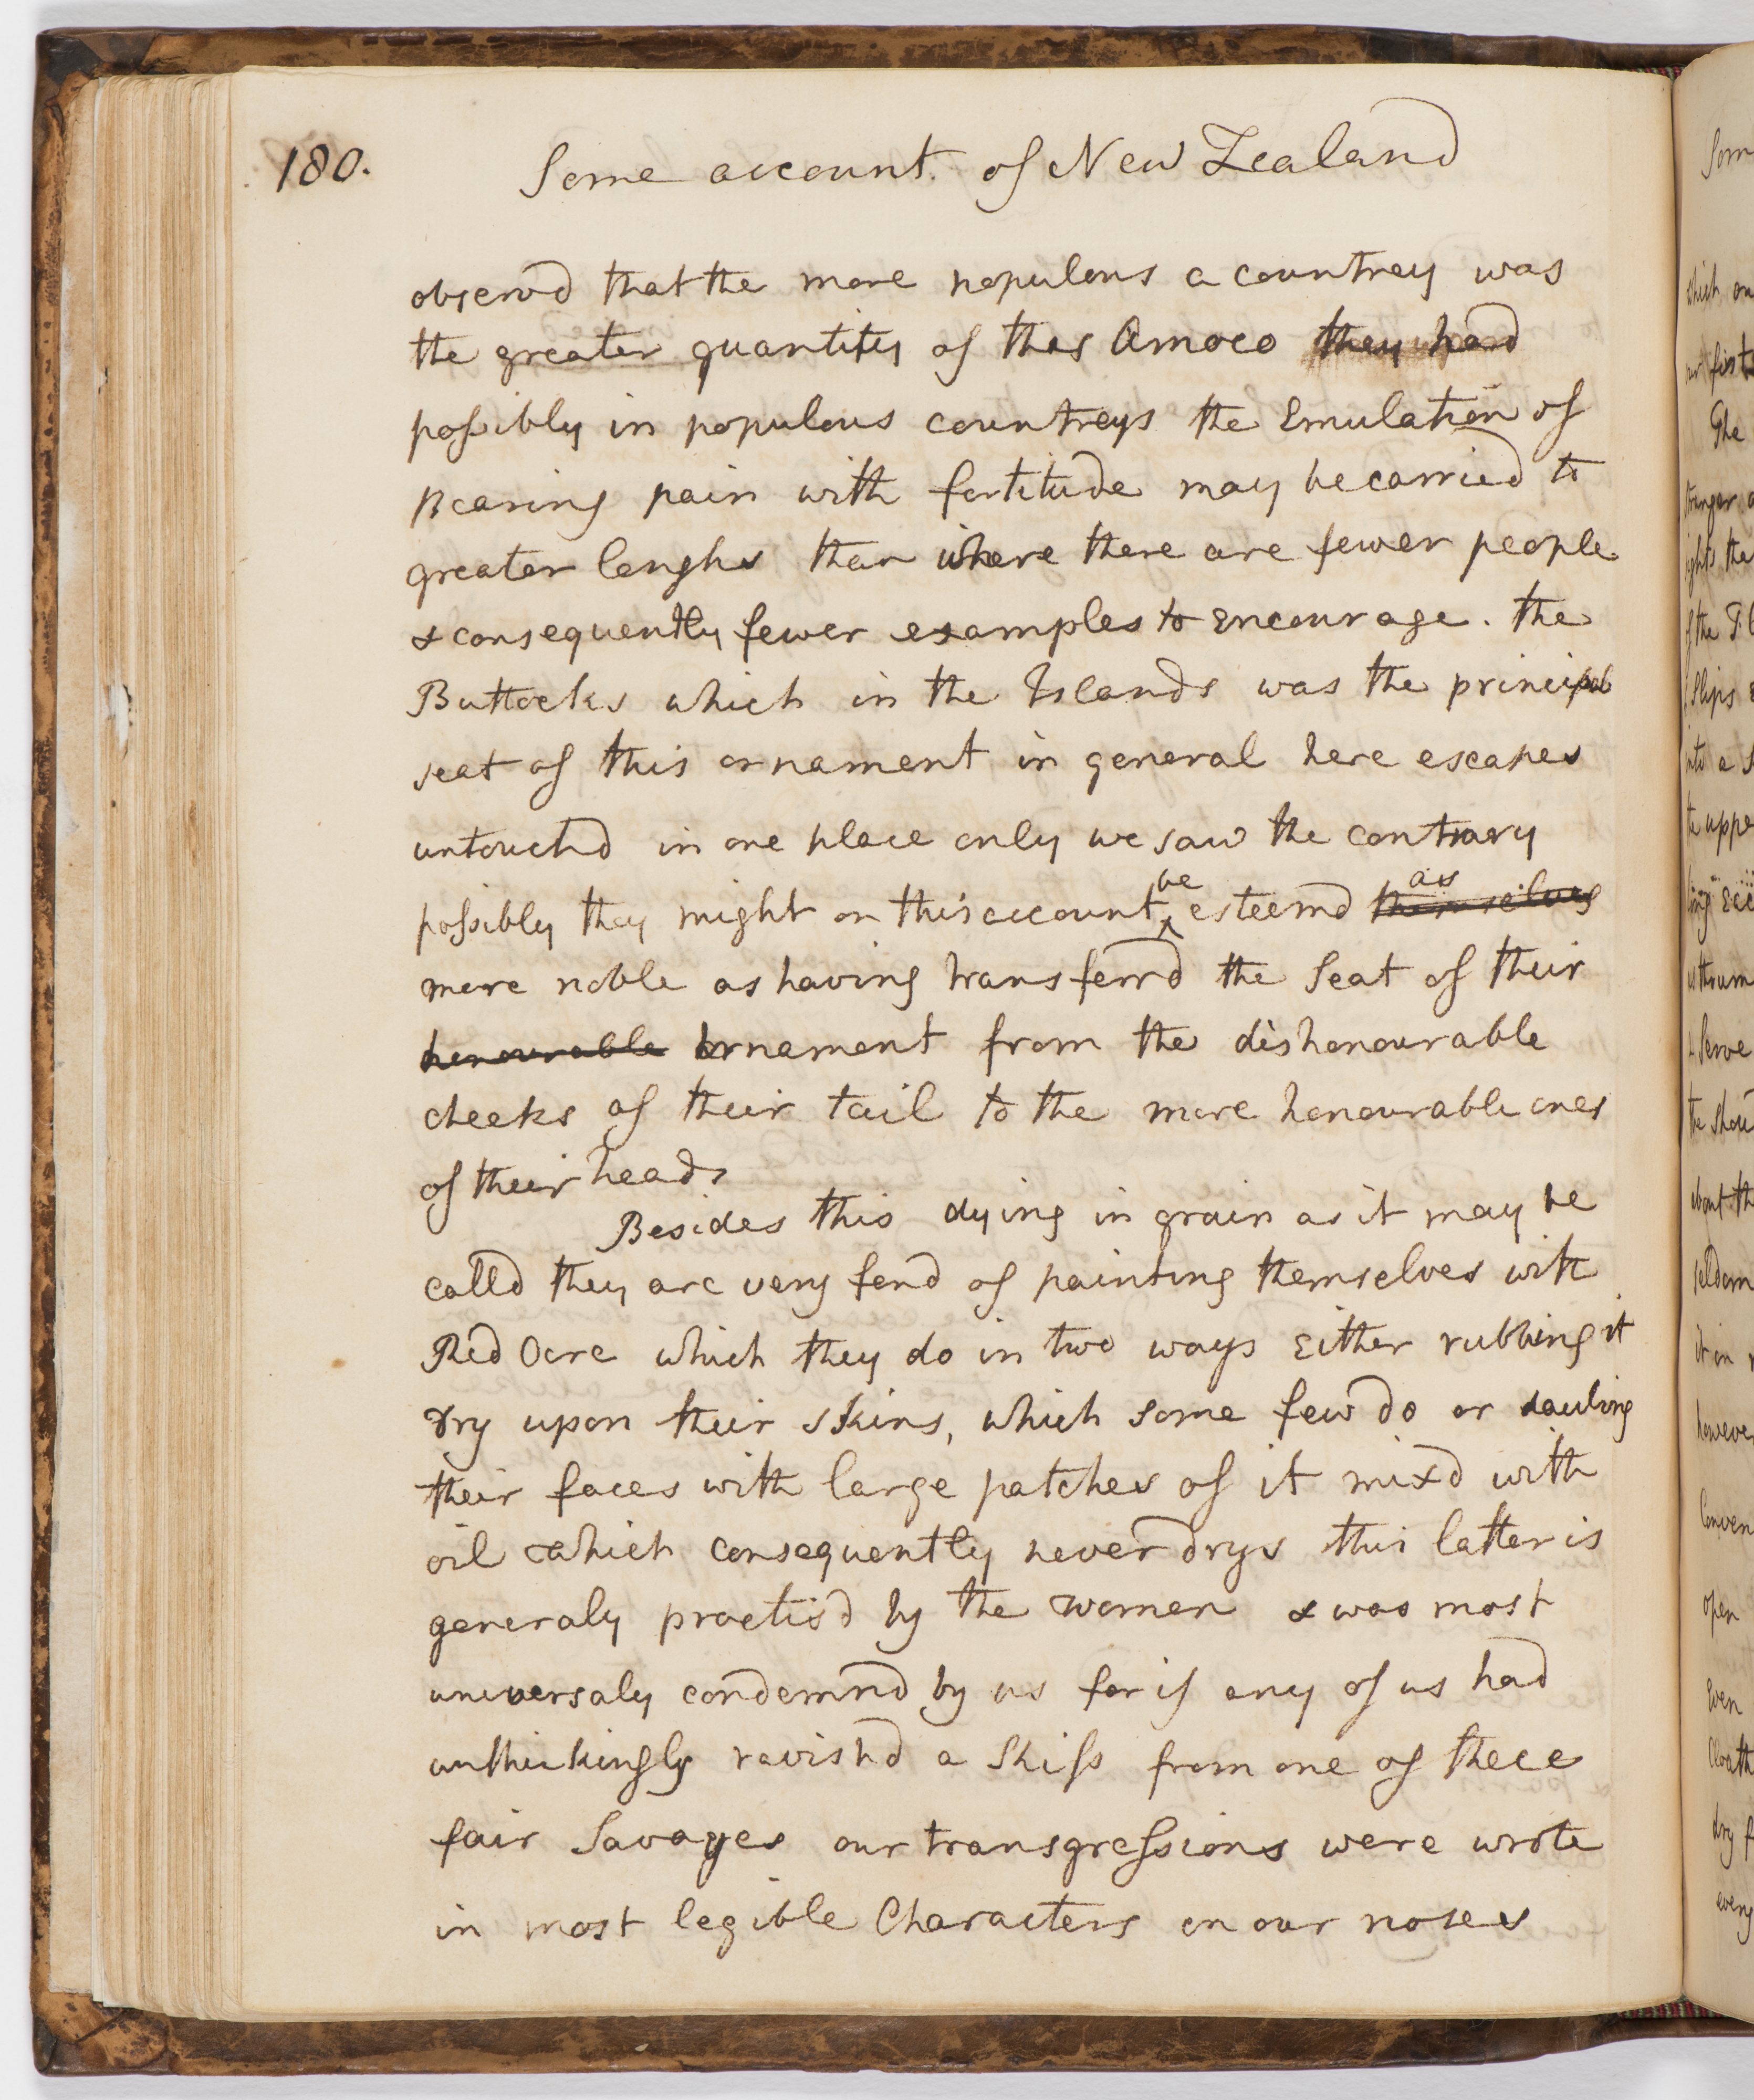 180.
Some account of New Zealand
observd that the more populous a countrey was
the greater quantity of this Amoco they had
possibly in populous countreys the Emulation of
Bearing pain with fortitude may be carried to
greater lenghs than where there are fewer people
& consequently fewer examples to Encourage. the
Buttocks which in the Islands was the principal
seat of this ornament in general here escapes
untouchd in one place only we saw the contrary
possibly they might on this account be esteemd themselves as
more noble as having transferrd the Seat of their
honourable ornament from the dishonourable
cheeks of their tail to the more honourable ones
of their heads
Besides this dying in grain as it may be
calld they are very fond of painting themselves with
Red Ocre which they do in two ways Either rubbing it
dry upon their skins, which some few do or dauling
their faces with large patches of it mixd with
oil which consequently never drys this latter is
generaly practisd by the women & was most
universaly condemnd by us for if any of us had
unthinkingly ravishd a Skiss from one of these
fair Savages our transgressions were wrote
in most legible Characters on our noses
Som
which on
our first
The
stranger a
ights the
of the Tl
Slips
into a s
the uppe
thrum
Serve
the Shou
about th
seldom
it in
howeve
Conven
open
Even
Cloath
dry f
every